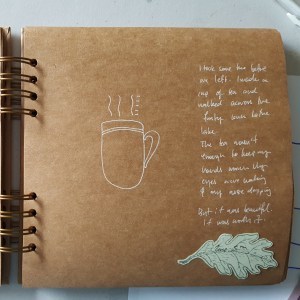 I had some time before
we left. Made a
cup of tea and
walked across the
lake.
The tea wasn't
enough to keep my
hands warm. My
eyes were watering
& my nose dripping
But it was beautiful.
It was worth it.